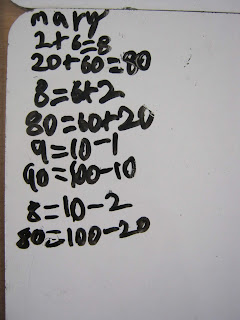 mary
2+6=8
20+60=80
8=6+2
80=60+20
9=10-1
90=100-10
8=10-2
80=100-20